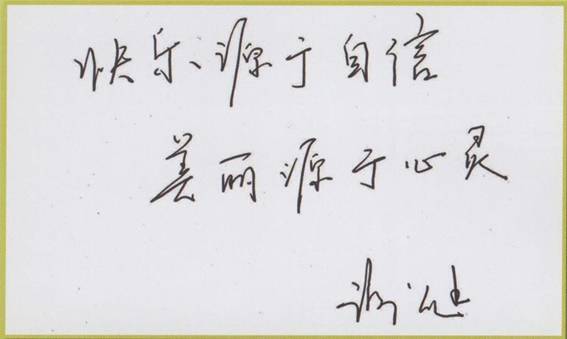 快乐源于自信
美丽源于心灵